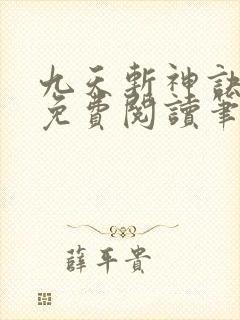 九天斬神訣
免費閱讀筆
薛平貴